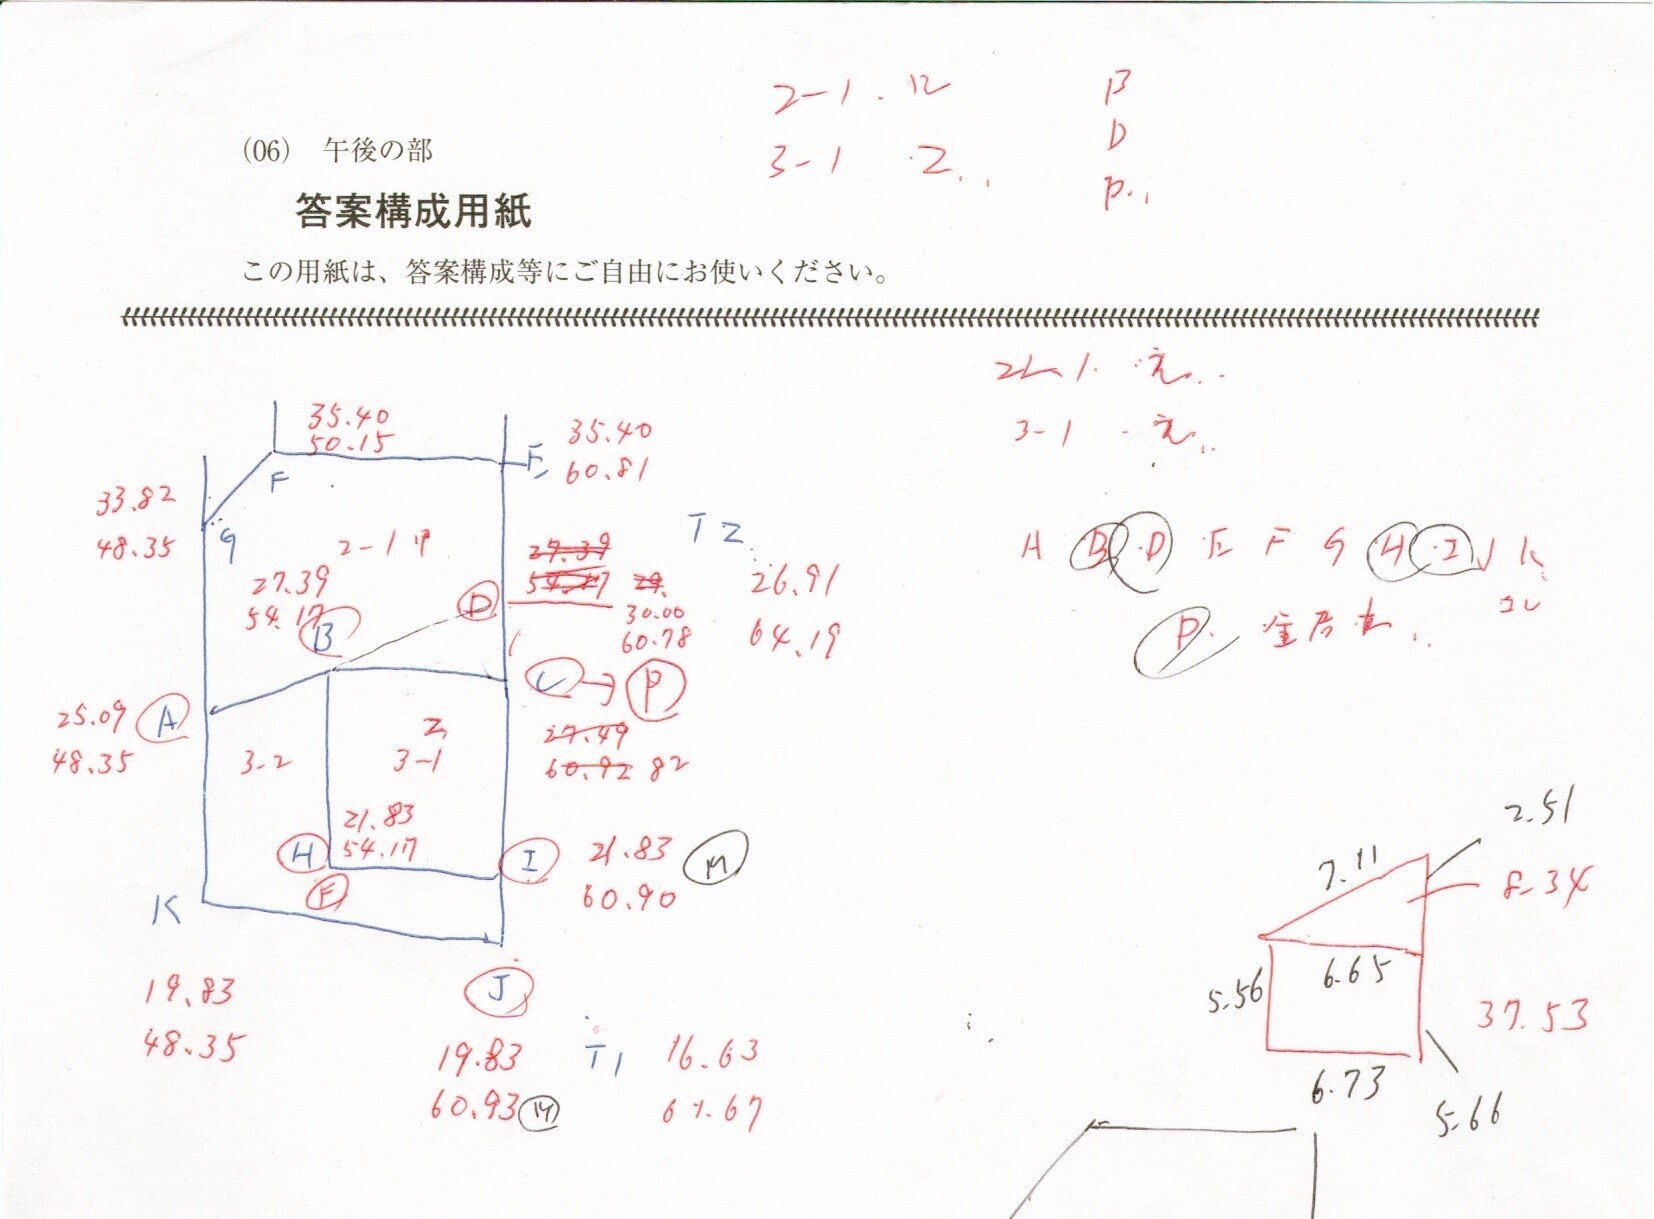 2-1
B
D
(06) 午後の部
3-1
P
答案構成用紙
この用紙は、答案構成等にご自由にお使いください。
3-1
35.40
50.15
35.40
60.81
F
E
33.82
48.35
G
2-1
T2
26.91
64.19
27.39
54.17
B
D
27.39
30.00
60.78
C → P
25.09
48.35
A
3-2
3-1
27.49
60.92 82
21.83
54.17
H
F
I
21.83
60.90
M
K
J
19.83
48.35
19.83
60.93 M
T1
16.63
61.67
A B D E F G H I J K
P
2.51
7.11
8.34
5.56
6.65
37.53
6.73
5.66